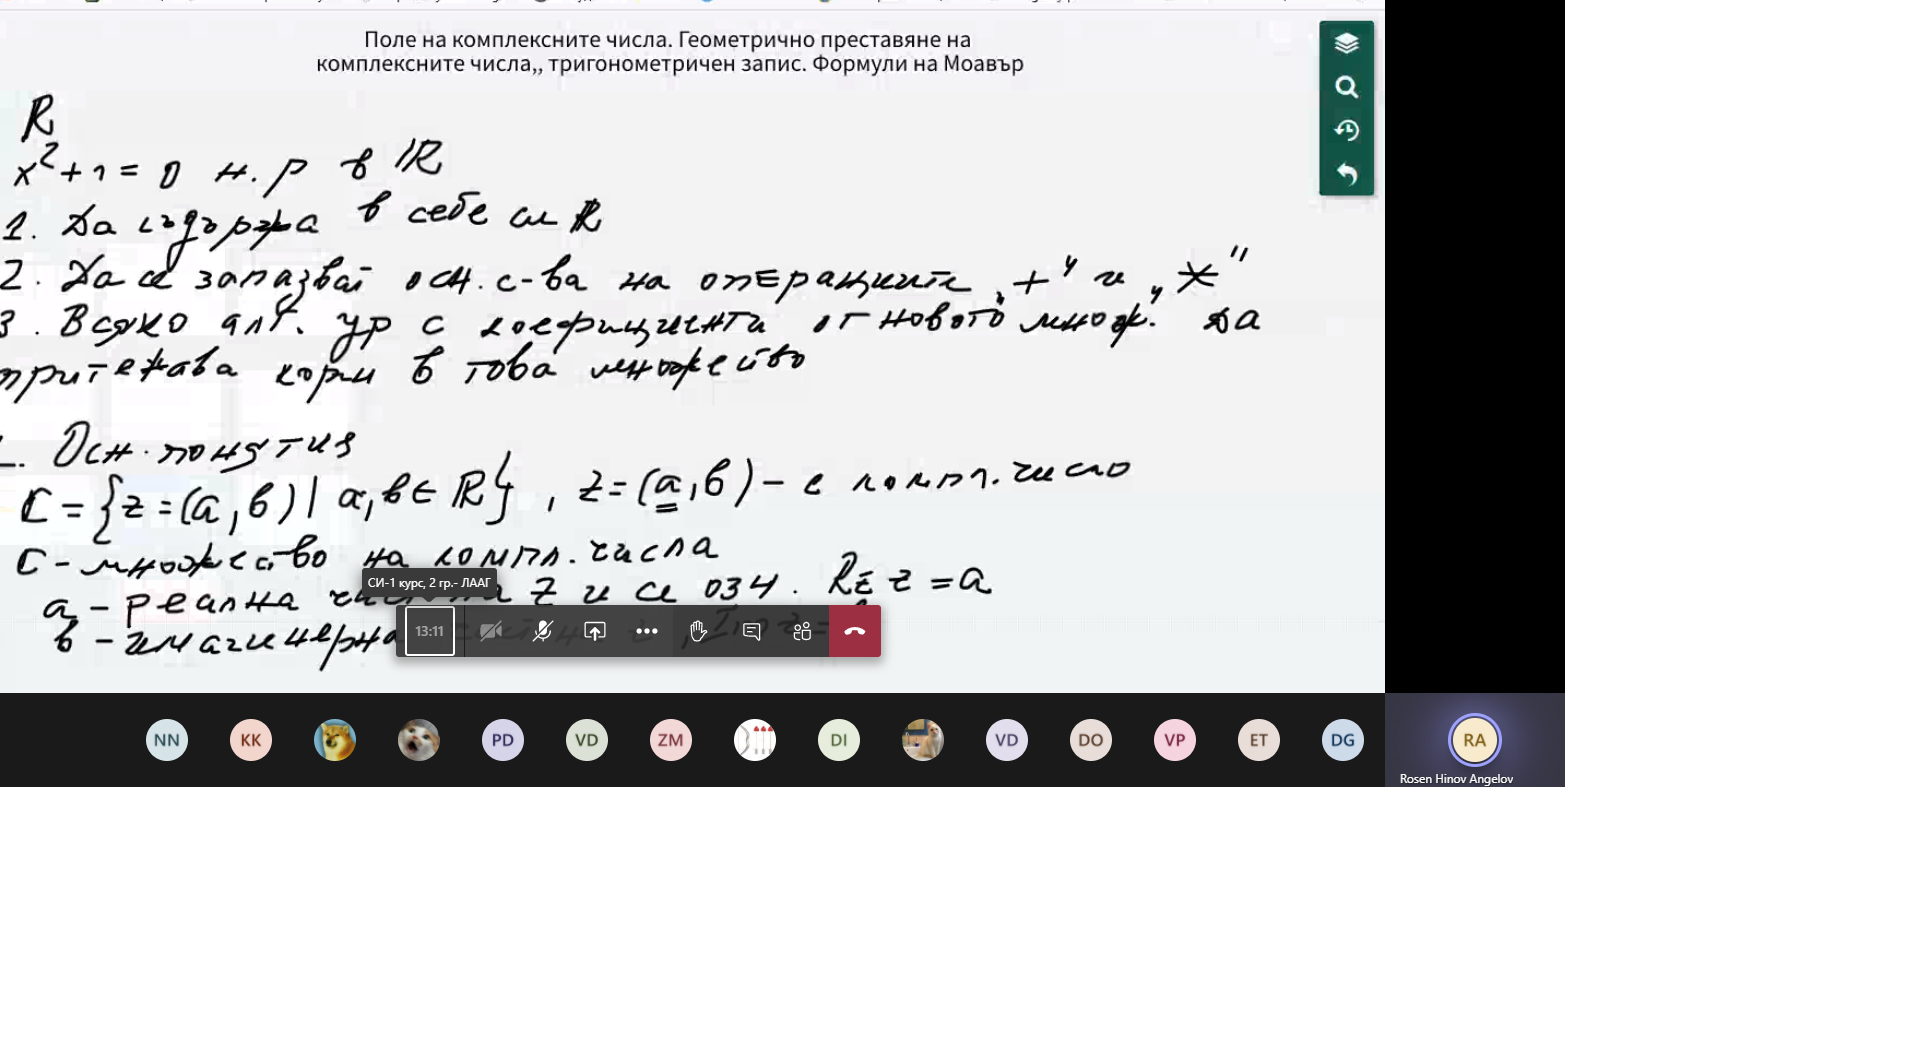 Поле на комплексните числа. Геометрично преставяне на
комплексните числа,, тригонометричен запис. Формули на Моавър
R
x²+1=0 н.р в ℝ
1. Да съдържа в себе си ℝ
2. Да се запазват осн. с-ва на операциите „+" и „*"
3. Всяко алг. ур с коефициенти от „новото множ." да
притежава корен в това множество
Осн. понятия
ℂ = {z=(a,b) | a,b ∈ ℝ}, z=(a,b) – е компл. число
ℂ - множество на компл. числа
a – реална z и се озн. Re z = a
СИ-1 курс, 2 гр.- ЛААГ
b – имагинерна
13:11
NN KK PD VD ZM DI VD DO VP ET DG RA
Rosen Hinov Angelov